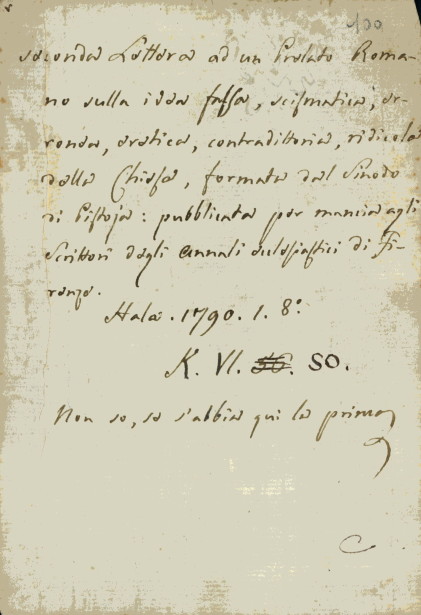 100
seconda Lettera ad un Prelato Roma-
no sulla idea falsa, scismatica, er-
ronea, eretica, contradittoria, ridicola
della Chiesa, formata dal Sinodo
di Pistoja: pubblicata per mancia agli
Scrittori degli annali eclesiastici di Fi-
renze.
Hala. 1790. 1. 8º.
K. VI. SO.
Non so, se s'abbia qui la prima